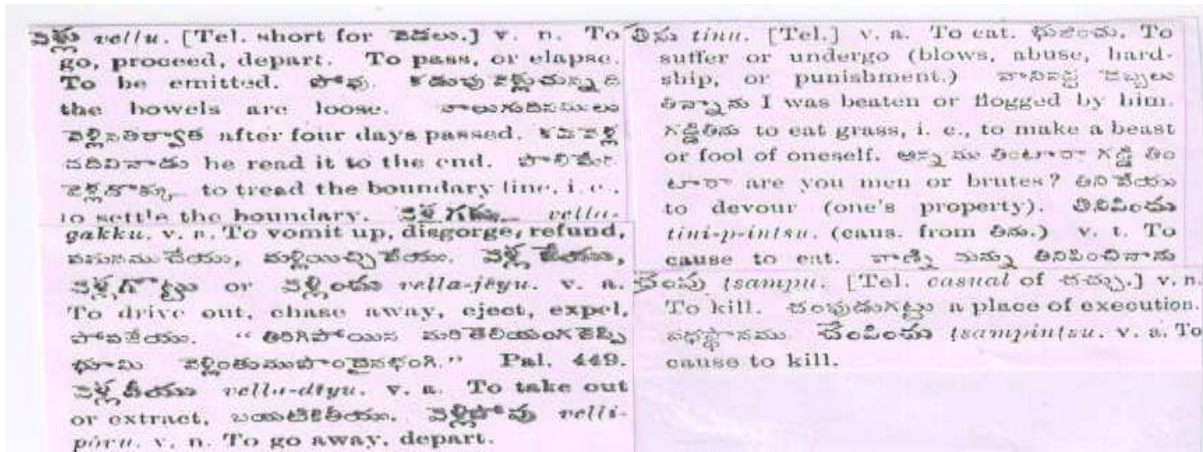 వెళ్లు vellu. [Tel. short for వెడలు.] v. n. To
go, proceed, depart. To pass, or elapse.
To be emitted. పోవు. కడుపు వెళ్లుచున్నది
the bowels are loose. నాలుగుదినములు
వెళ్లినతర్వాత after four days passed. కడవెళ్ల
చదివినాడు he read it to the end. పొలిమేర
వెళ్లదొక్కు to tread the boundary line, i. e.,
to settle the boundary. వెళ్లగక్కు vellu-
gakku. v. n. To vomit up, disgorge, refund,
వమనముచేయు, మళ్లియిచ్చివేయు. వెళ్లజేయు,
వెళ్లగొట్టు or వెళ్లించు vella-jēyu. v. a.
To drive out, chase away, eject, expel,
పోవజేయు. “ తిరిగిపోయిన మరి తెలియంగ జెప్పి
భూమి Pal. 449.
వెళ్లదీయు vellu-dīyu. v. a. To take out
or extract, బయటికితీయు. వెళ్లిపోవు velli-
pōvu. v. n. To go away, depart.
తిను tinu. [Tel.] v. a. To eat. భుజించు. To
suffer or undergo (blows, abuse, hard-
ship, or punishment.) వానిచేత దెబ్బలు
తిన్నాను I was beaten or flogged by him.
గడ్డితిను to eat grass, i. e., to make a beast
or fool of oneself. అన్నము తింటారా గడ్డి తిం
టారా are you men or brutes? తినివేయు
to devour (one's property). తినిపించు
tini-p-intsu. (caus. from తిను.) v. t. To
cause to eat. వాణ్ని నున్ను తినిపించినాడు
చంపు tsampu. [Tel. casual of చచ్చు.] v. n.
To kill. చంపుడుగట్టు a place of execution
వధస్థానము. చంపించు tsampintsu. v. a. To
cause to kill.